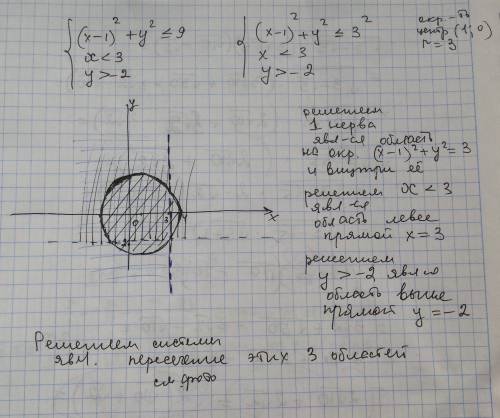 (x-1)² + y² ≤ 9
x < 3
y > -2
(x-1)² + y² ≤ 3²
x < 3
y > -2
окр-ть
центр (1; 0)
r = 3
y
0
3
x
решением
1 нерва
явл-ся область
на окр. (x-1)² + y² = 3
и внутри её
решением x < 3
явл-ся
область левее
прямой x = 3
решением
y > -2 явл ся
область выше
прямой y = -2
Решением системы
явл. пересечение этих 3 областей
см фото